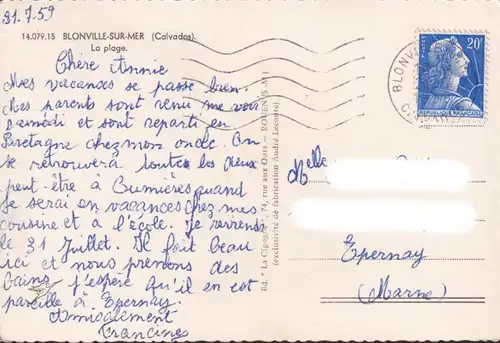 21.7.59
14.079.15 BLONVILLE-SUR-MER (Calvados).
La plage.
Chère Annie
Mes vacances se passe bien.
Mes parents sont venu me voir
samedi et sont reparti en
Bretagne chez mon oncle. On
se retrouvera toutes les deux
peut-être à Cumières quand
je serai en vacances chez mes
cousine et à l'école. Je reviens
le 31 Juillet. Il fait beau
ici et nous prenons des
bains, j'espère qu'il en est
pareille à Epernay.
Amicalement
Francine
Ed. "La Cigogne", 74, rue aux Ours - ROUEN
(exclusivité de fabrication André Leconte)
20F
REPUBLIQUE FRANÇAISE
BLONVI
Melle
Epernay
(Marne)